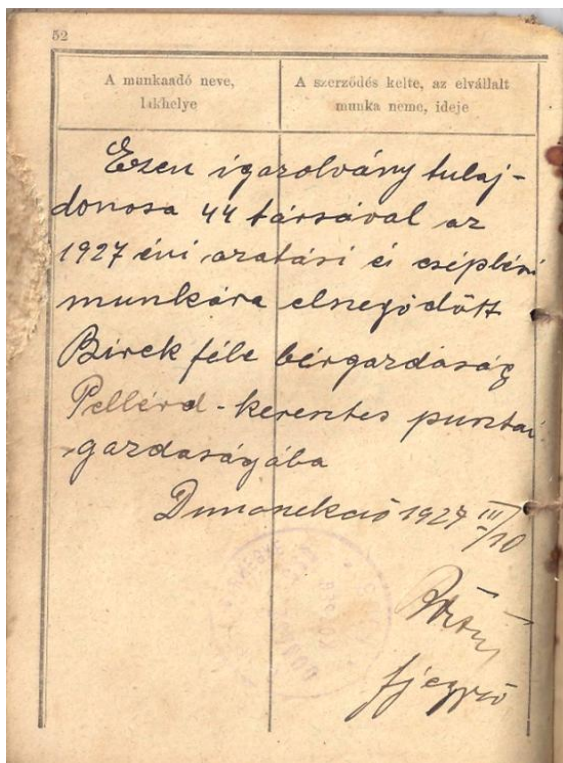 52
A munkaadó neve,
lakhelye
A szerződés kelte, az elvállalt
munka neme, ideje
Ezen igazolvány tulaj-
donosa 44 társával az
1927 évi aratási és cséplési
munkára elszegődött
Birek féle bérgazdaság
Pellérd-keresztes pusztai
gazdaságába
1927 III/10
fjegyző